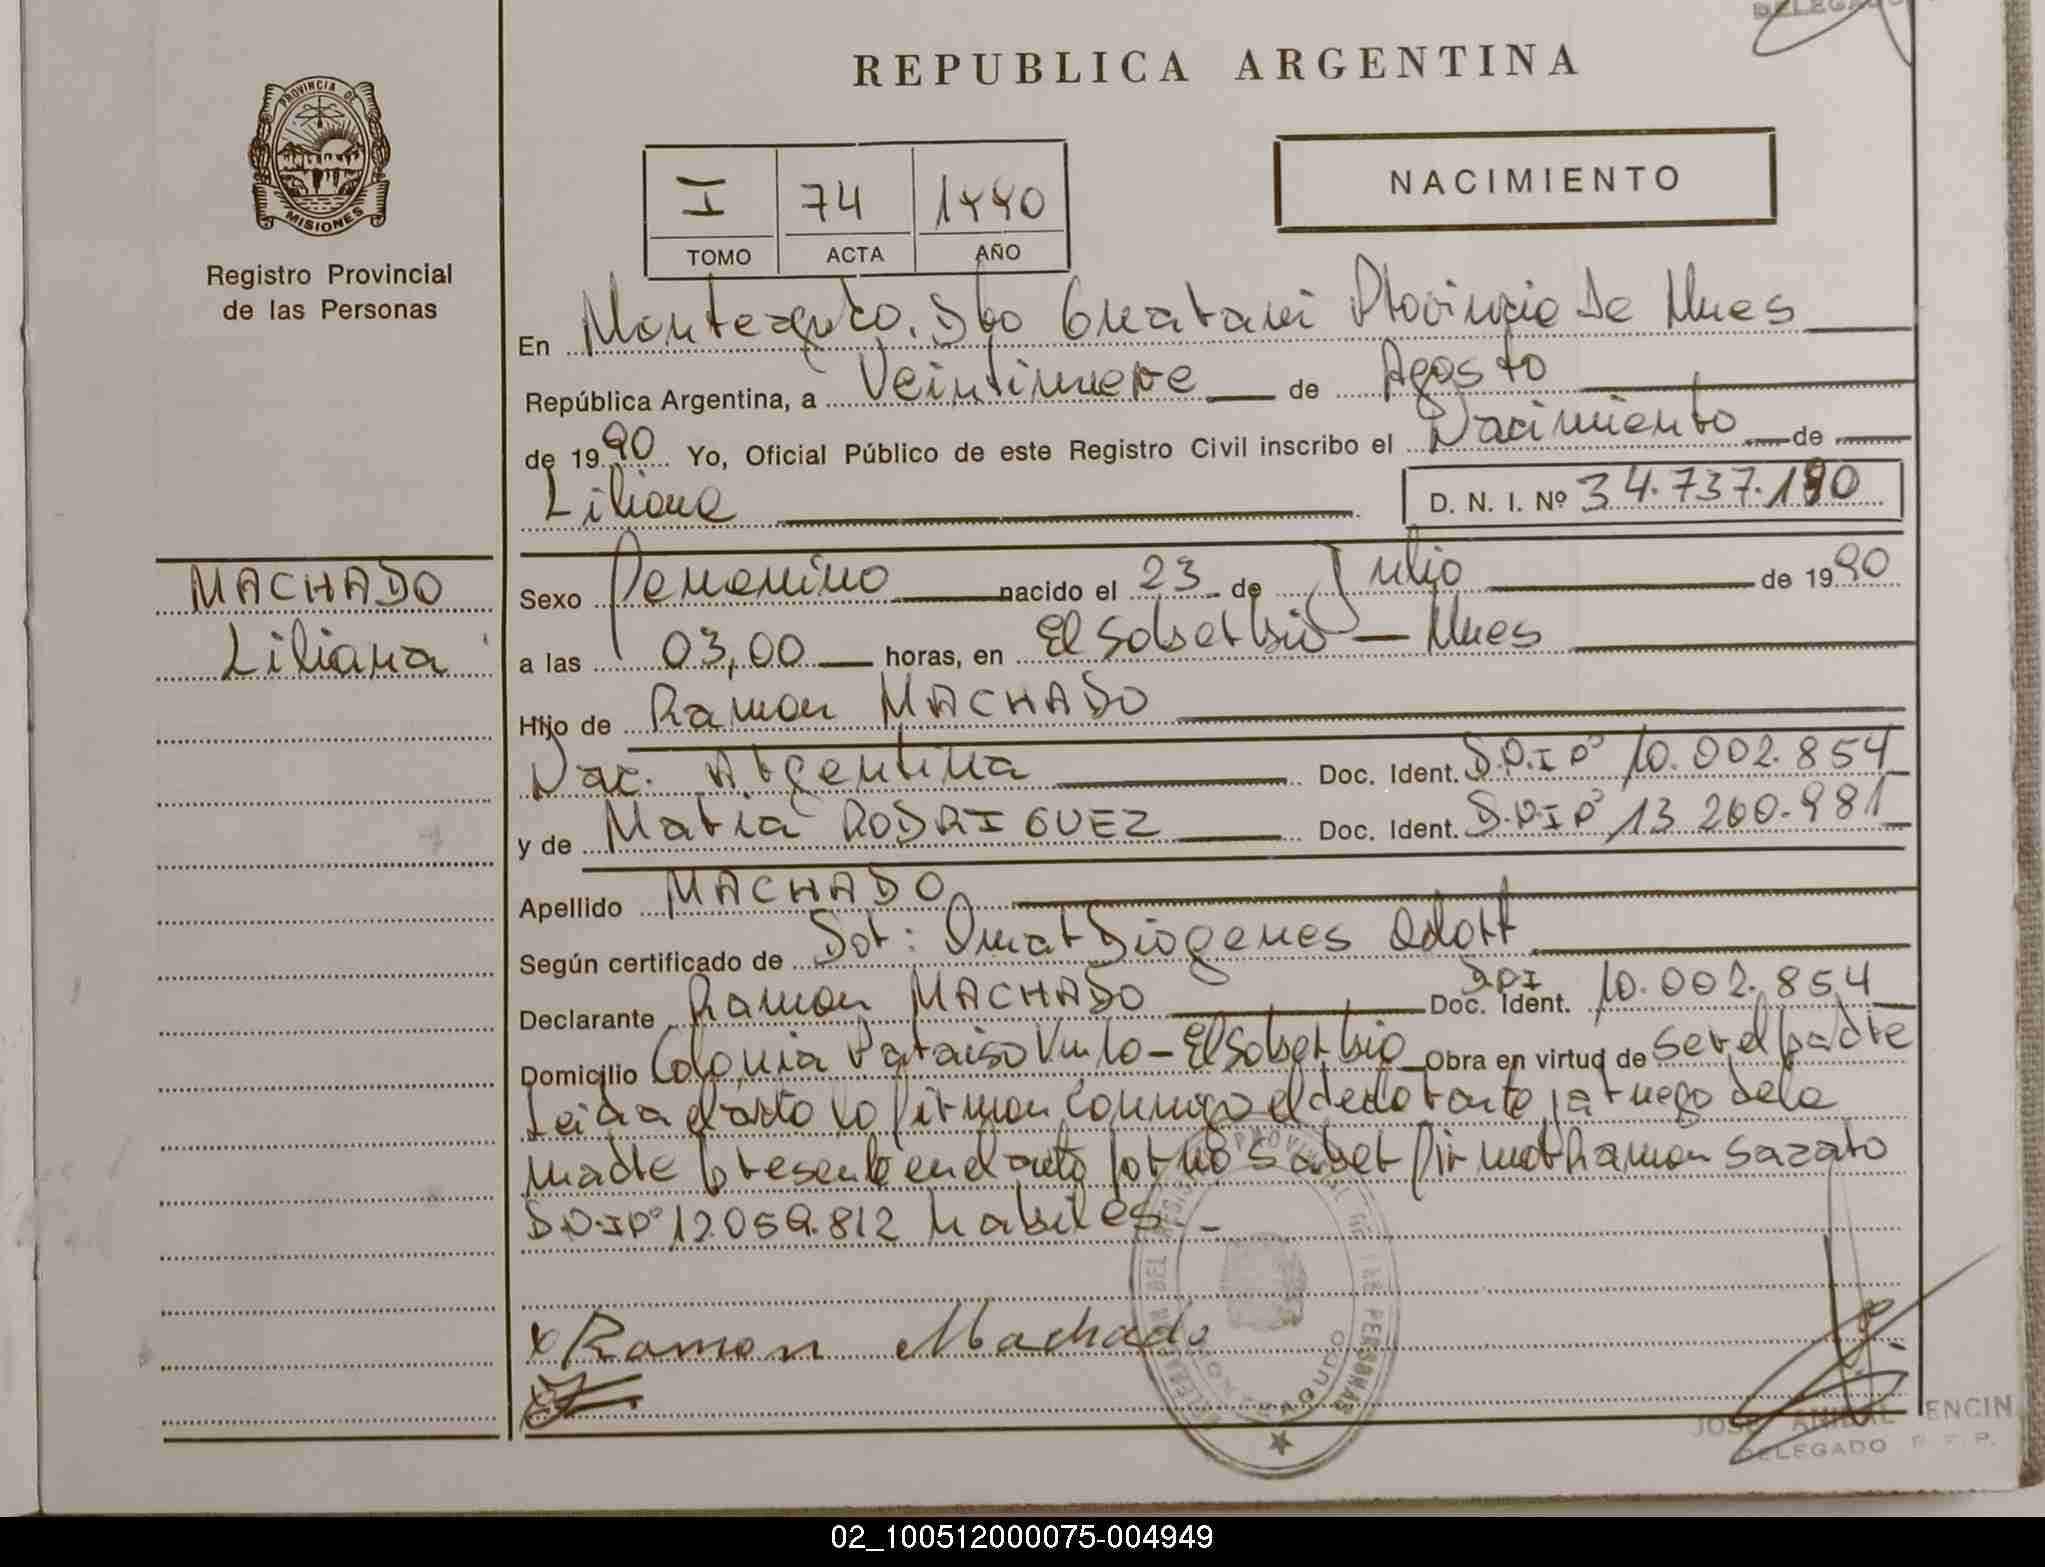 DELEGADO
REPUBLICA ARGENTINA
PROVINCIA DE
MISIONES
Registro Provincial
de las Personas
I 74 1990
TOMO ACTA AÑO
NACIMIENTO
En Monteagudo. Dto Guarani Provincia De Mnes
República Argentina, a Veintinueve de Agosto
de 1990 Yo, Oficial Público de este Registro Civil inscribo el Nacimiento de
Liliana D. N. I. Nº 34.737.190
MACHADO
Liliana
Sexo Femenino nacido el 23 de Julio de 1990
a las 03,00 horas, en El Soberbio - Mnes
Hijo de Ramon MACHADO
Nac. Argentina Doc. Ident. D.N.I Nº 10.002.854
y de Maria RODRIGUEZ Doc. Ident. D.N.I Nº 13 260.981
Apellido MACHADO
Según certificado de Dor: Omar Diogenes
Declarante Ramon MACHADO Doc. Ident. DNI 10.002.854
Domicilio Colonia Paraiso - El Soberbio Obra en virtud de ser el padre
Leida el acta la firman conmigo el declarante, a ruego de la
madre presente en el acto por no saber firmar Ramon
D.N.I Nº 12.059.812 habiles.-
x Ramon Machado
DELEGACION DEL REGISTRO PROVINCIAL DE LAS PERSONAS
MONTEAGUDO
JOSE ANIBAL ENCIN
DELEGADO R. P. P.
02_100512000075-004949